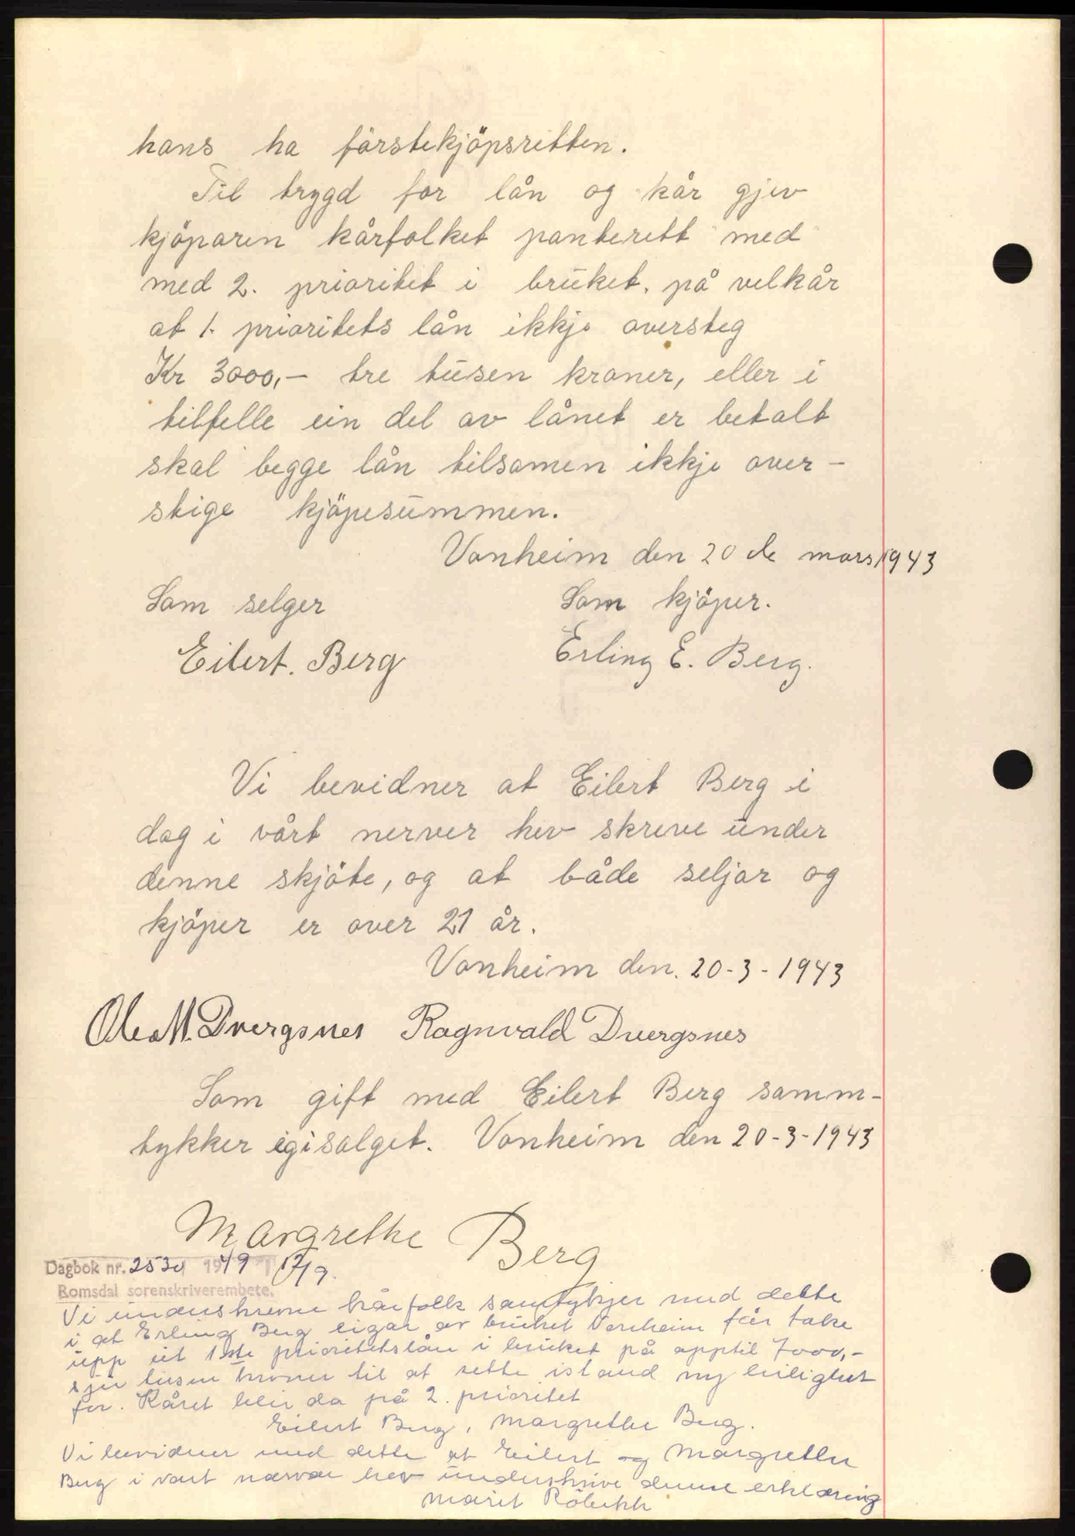 hans ha förstekjöpsretten.
Til trygd for lån og kår gjev
kjöparen kårfolket panterett med
med 2. prioritet i brüket. på velkår
at 1. prioritets lån ikkje oversteg
Kr 3000,- tre tüsen kroner, eller i
tilfelle ein del av lånet er betalt
skal begge lån tilsamen ikkje over-
stige kjöpesümmen.
Vonheim den 20 de mars 1943
Som selger
Som kjöper.
Eilert. Berg
Erling E. Berg.
Vi bevidner at Eilert Berg i
dag i vårt nerver hev skreve ünder
denne skjöte, og at både seljar og
kjöper er over 21 år.
Vonheim den. 20-3-1943
Ole M. Dvergsnes Ragnvald Dvergsnes
Som gift med Eilert Berg samm-
tykker eg i salget. Vonheim den 20-3-1943
Margrethe Berg
Dagbok nr. 2530 1949 12/9
Romsdal sorenskriverembete.
Vi ünderskrevne kårfolk samtykjer med dette
i at Erling Berg eigar av brüket Vonheim får take
üpp eit 1ste prioritetslån i brüket på opptil 7000,-
sjü tüsen kroner til at sette istand ny leilighet
for. Kåret blir da på 2. prioritet
Eilert Berg, Margrethe Berg.
Vi bevidner med dette at Eilert og Margrethe
Berg i vart nærvær hev ünderskrive denne erklæring
Marit Röbekk